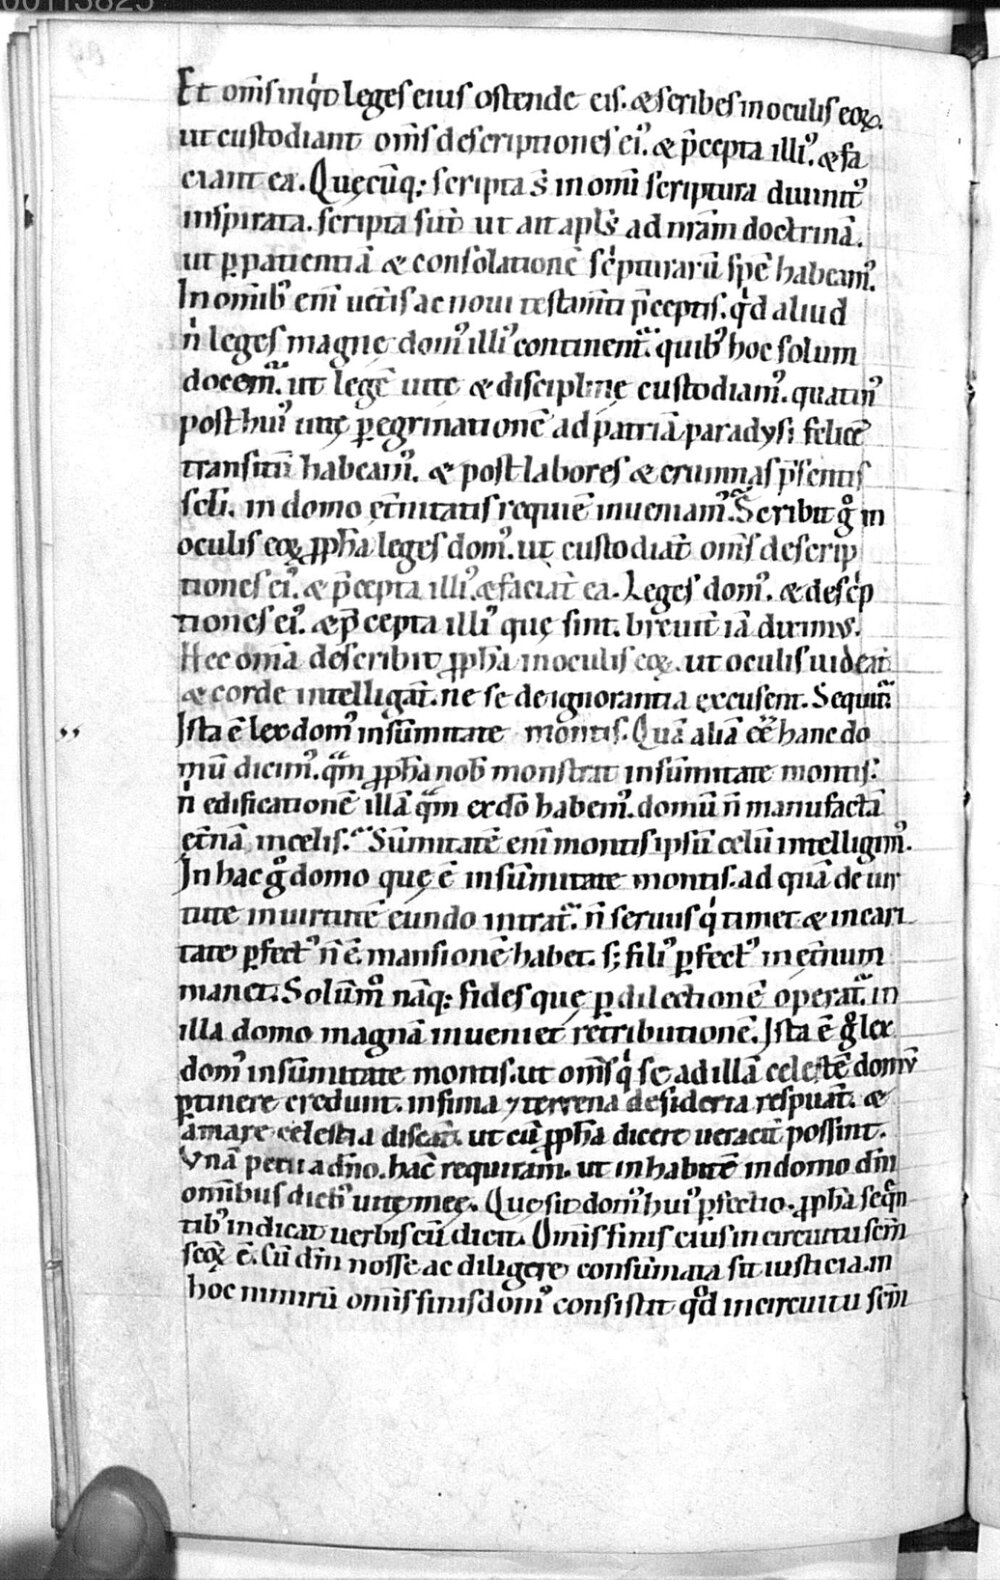 00113825
Et om̄s inqͥt leges eius ostende eis. & scribes in oculis eoꝝ.
ut custodiant om̄s descriptiones ei᷒. & p̄cepta illi᷒. & fa
ciant ea. Quęcūq; scripta s̄ in omī scriptura diuinit᷒
inspirata. scripta sūt ut ait apl̄s ad nr̄am doctrinā.
ut ꝑ patientiā & consolationē scͥpturarū spē habeam᷒.
In omīb᷒ enī uet̄is ac noui testam̄ti p̄ceptis. qͥd aliud
nͥ leges magnę dom᷒ illi᷒ continent᷑. quib᷒ hoc solum
docem᷑. ut legē uitę & disciplinę custodiam᷒. quatin᷒
post hui᷒ uitę ꝑegrinationē ad patriā paradysi felicē
transitū habeam᷒. & post labores & erumnas p̄sentis
sc̄li. in domo et̄nitatis requiē inueniam᷒. Scribit gͦ in
oculis eoꝝ ꝓph̄a leges dom᷒. ut custodiāt om̄s descrip
tiones ei᷒. & p̄cepta illi᷒. & faciāt ea. Leges dom᷒. & descͥp
tiones ei᷒. & p̄cepta illi᷒ quę sint. breuit̄ iā diximus.
Hec omīa describit ꝓph̄a in oculis eoꝝ. ut oculis uideāt
& corde intelligāt. ne se de ignorantia excusent. Sequit᷑
Ista ē lex dom᷒ in sūmitate montis. Quā aliā eē hanc do
mū dicim᷒. qᵃm ꝓph̄a nob̄ monstrat in sūmitate montis.
nͥ edificationē illā qᵃm ex dō habem᷒. domū n̄ manufactā
et̄nā in celis. Sūmitatē enī montis ipsū celū intelligim᷒.
In hac gͦ domo quę ē in sūmitate montis. ad quā de uir
tute in uirtutē eundo intrat᷑. n̄ seruus qͥ timet & in cari
tate ꝑfect᷒ n̄ ē. mansionē habet. s; fili᷒ ꝑfect᷒ in et̄num
manet. Solūmͦ nāq; fides quę ꝑ dilectionē operat᷑. in
illa domo magnā inueniet retributionē. Ista ē gͦ lex
dom᷒ in sūmitate montis. ut om̄s qͥ se ad illā celestē domū
ꝑtinere credunt. infima ⁊ terrena desideria respuāt. &
amare celestia discāt. ut cū ꝓph̄a dicere ueracit̄ possint.
Vnā petii a dn̄o. hāc requiram. ut inhabitē in domo dn̄i
omībus dieb᷒ uitę meę. Quę sit dom᷒ hui᷒ ꝑfectio. ꝓph̄a seqn̄
tib᷒ indicat uerbis cū dicit. Omīs finis eius in circuitu scm̄
scoꝝ ē. Cū dn̄m nosse ac diligere consūmata sit iusticia. in
hoc nimirū omīs finis dom᷒ consistit qͦd in circuitu scm̄